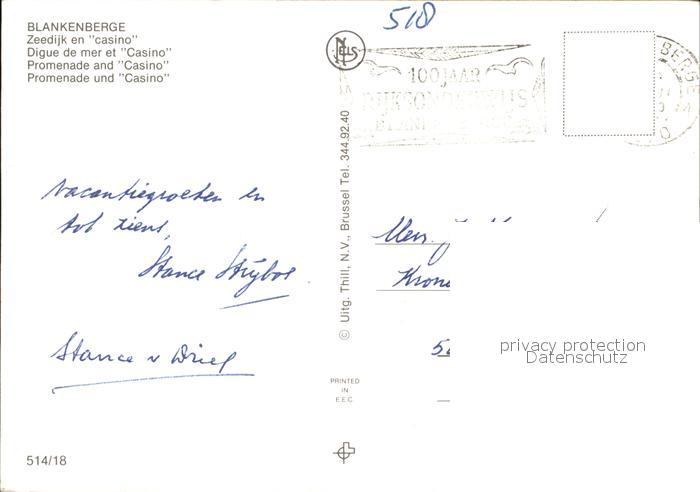 BLANKENBERGE
Zeedijk en "casino"
Digue de mer et "Casino"
Promenade and "Casino"
Promenade und "Casino"
518
NELS
100 JAAR
RIJKSONDERWIJS
BERGE
Vacantiegroeten en
tot ziens,
Stance Strijbos
Stance v Driel
© Uitg. Thill, N.V., Brussel Tel. 344.92.40
Mevr.
Krone
5
privacy protection
Datenschutz
PRINTED
IN
E.E.C.
514/18